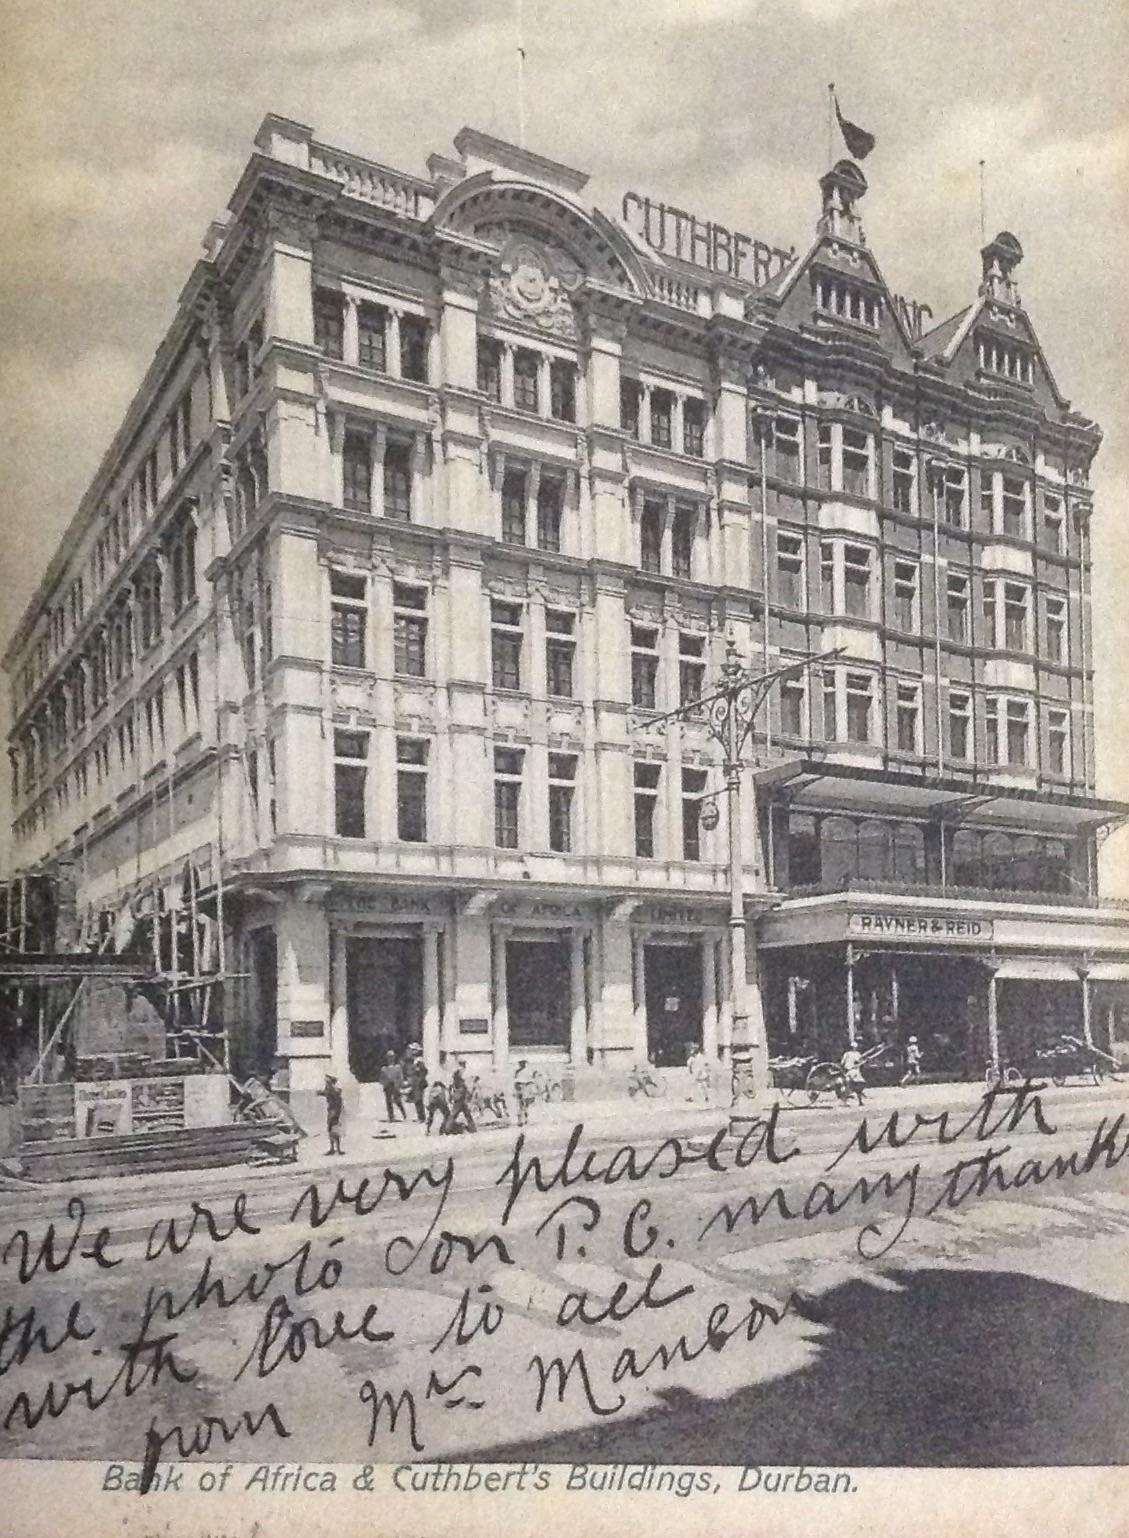 CUTHBERT'
THE BANK OF AFRICA LIMITED
RAYNER & REID
We are very pleased with
the photo on P. C. many thanks
with love to all
from Mrs Manson
Bank of Africa & Cuthbert's Buildings, Durban.